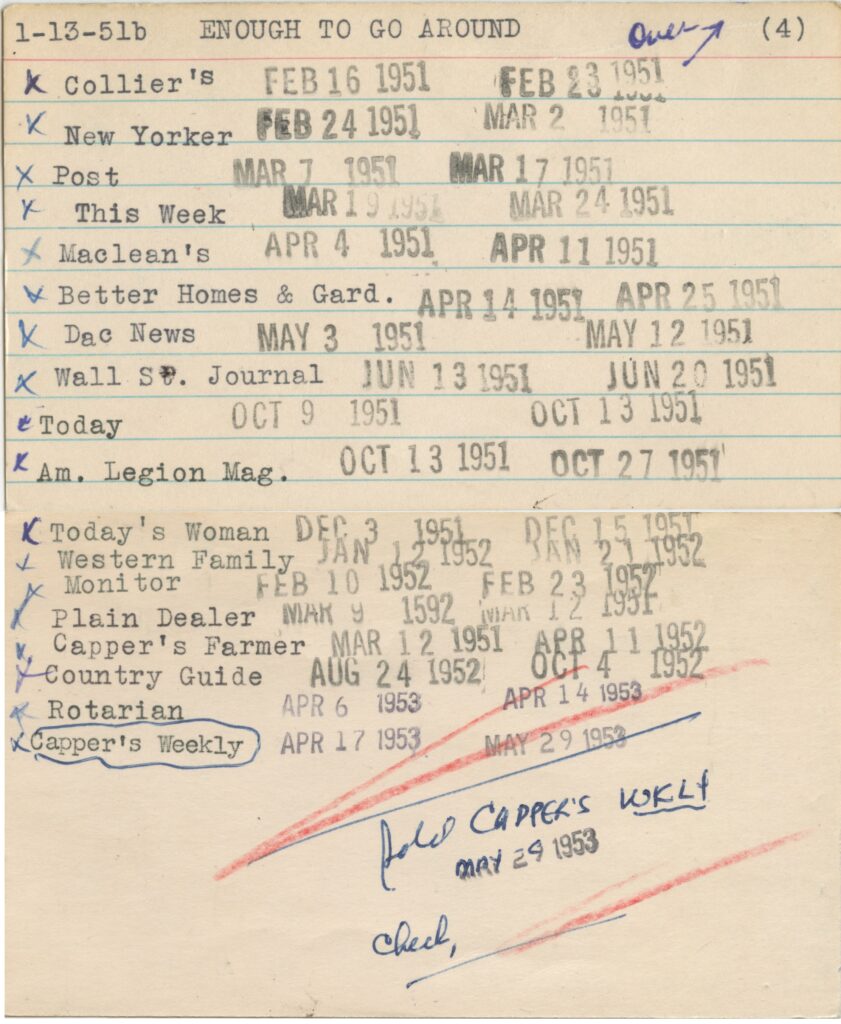 1-13-51b ENOUGH TO GO AROUND Over (4)
x Collier's FEB 16 1951 FEB 23 1951
x New Yorker FEB 24 1951 MAR 2 1951
x Post MAR 7 1951 MAR 17 1951
x This Week MAR 19 1951 MAR 24 1951
x Maclean's APR 4 1951 APR 11 1951
x Better Homes & Gard. APR 14 1951 APR 25 1951
x Dac News MAY 3 1951 MAY 12 1951
x Wall St. Journal JUN 13 1951 JUN 20 1951
x Today OCT 9 1951 OCT 13 1951
x Am. Legion Mag. OCT 13 1951 OCT 27 1951
x Today's Woman DEC 3 1951 DEC 15 1951
x Western Family JAN 12 1952 JAN 21 1952
x Monitor FEB 10 1952 FEB 23 1952
x Plain Dealer MAR 9 1592 MAR 12 1951
x Capper's Farmer MAR 12 1951 APR 11 1952
x Country Guide AUG 24 1952 OCT 4 1952
x Rotarian APR 6 1953 APR 14 1953
x Capper's Weekly APR 17 1953 MAY 29 1953
Sold CAPPER'S WKLY
MAY 29 1953
Check,